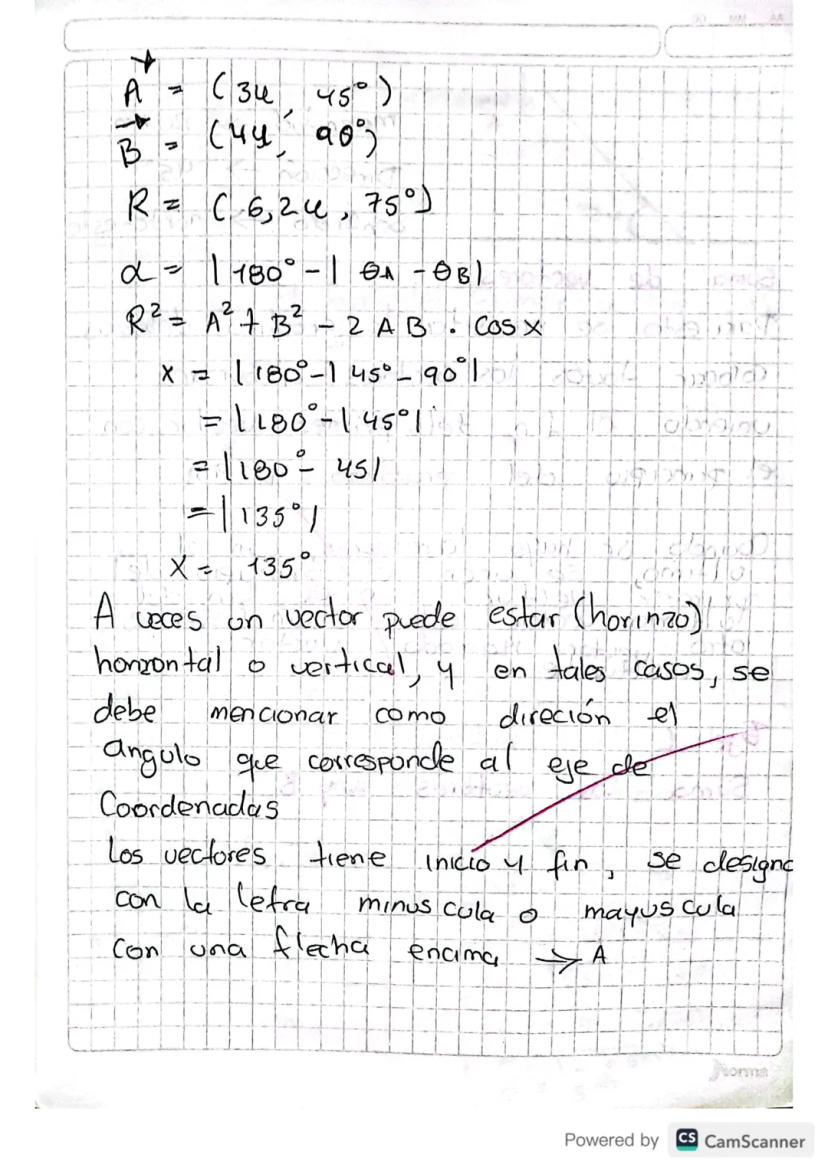 A⃗ = (3u, 45°)
B⃗ = (4u, 90°)
R = (6,2u, 75°)
α = |180° - | θA - θB|
R² = A² + B² - 2 A B . cos x
x = |180° - | 45° - 90°|
= |180° - | 45°|
= |180° - 45|
= |135°|
x = 135°
A veces un vector puede estar (horinzo)
horizontal o vertical, y en tales casos, se
debe mencionar como direción el
angulo que corresponde al eje de
Coordenadas
Los vectores tiene inicio y fin, se designa
con la letra minuscula o mayuscula
con una flecha encima → A
norma
Powered by CS CamScanner